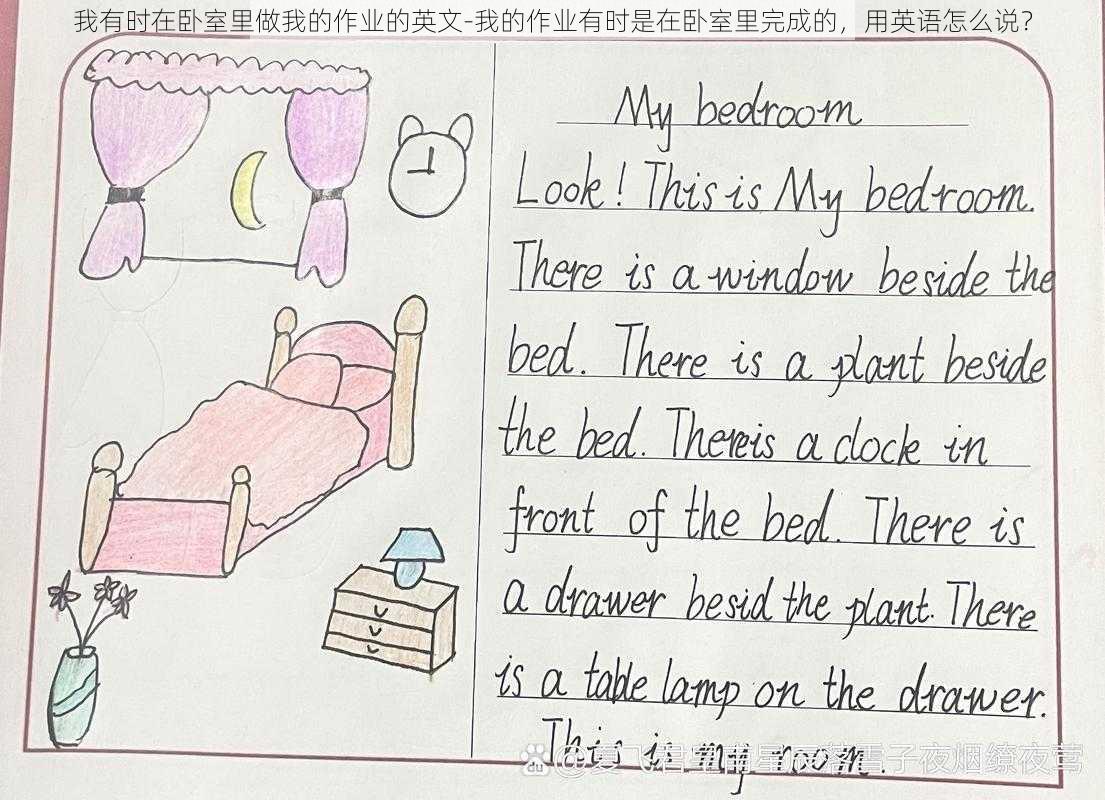 我有时在卧室里做我的作业的英文-我的作业有时是在卧室里完成的，用英语怎么说？
My bedroom
Look! This is My bedroom.
There is a window beside the
bed. There is a plant beside
the bed. Thereis a clock in
front of the bed. There is
a drawer besid the plant. There
is a table lamp on the drawer.
This is my room.
Bai du @夏飞君 星 落雪子夜烟缭夜莺